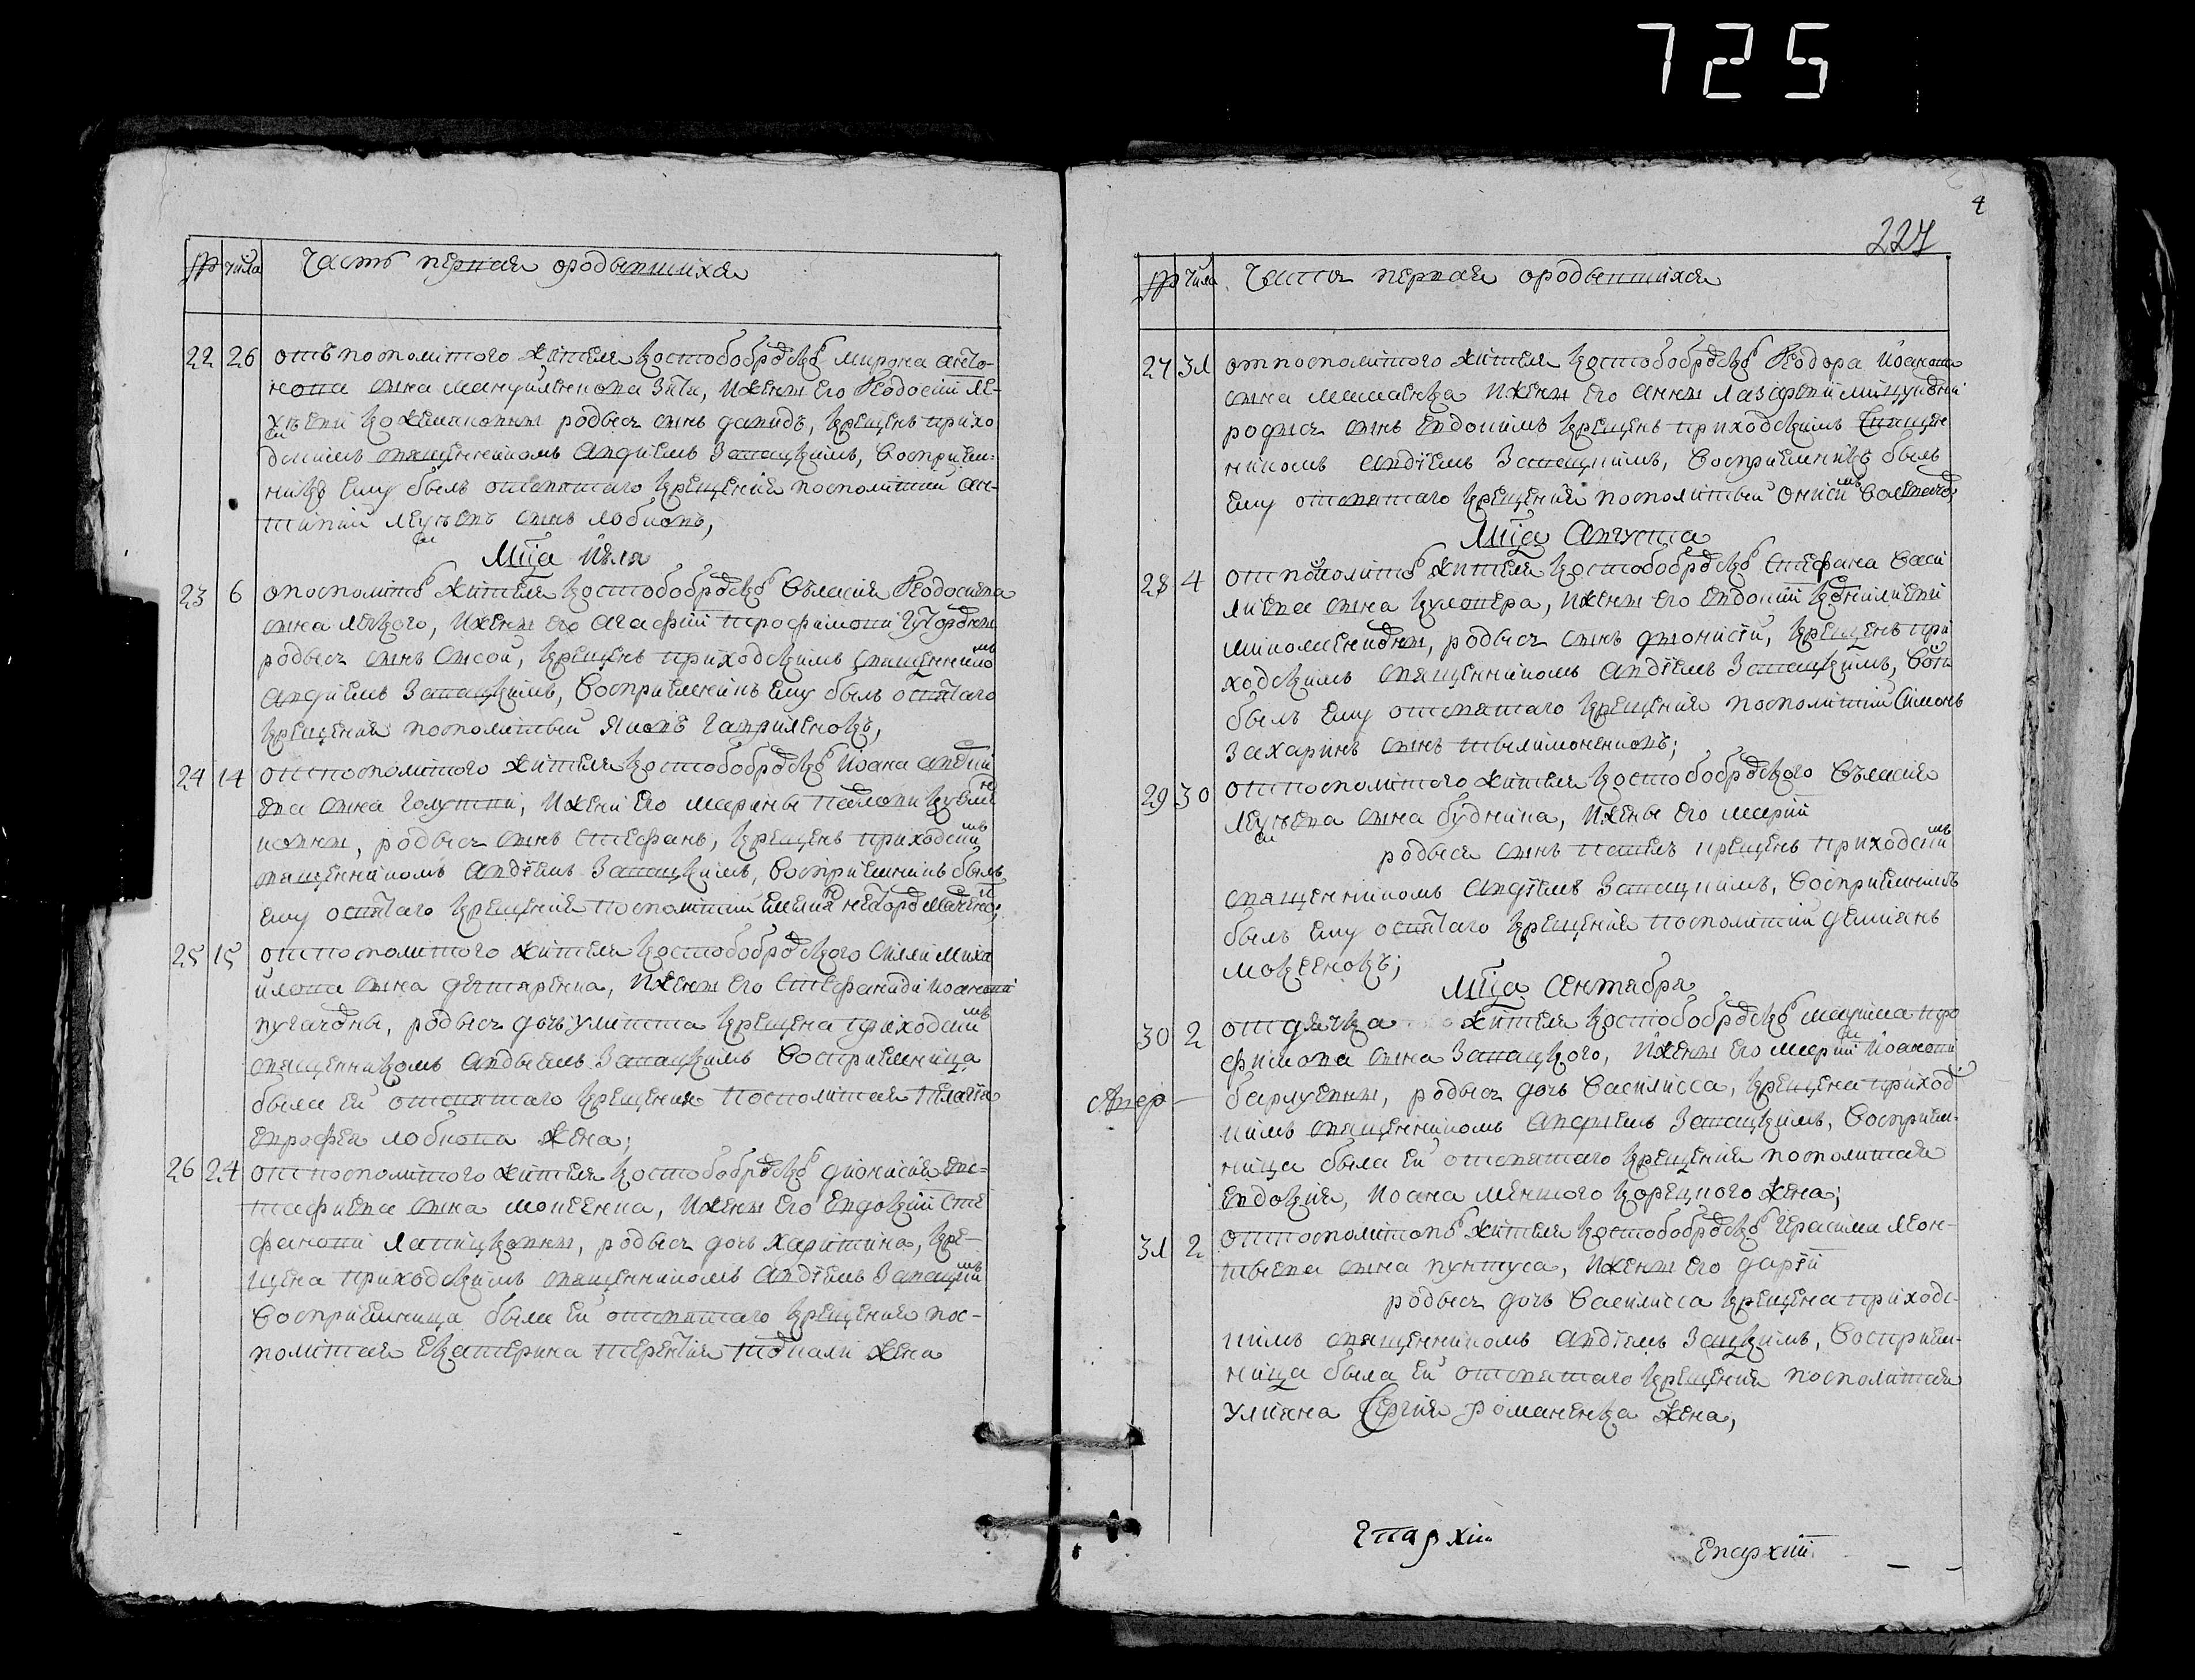 725
№ числа Часть первая ородывшихся
22 26 отъ посполитого жителя костобобровского Мирона Анто-
нова сына Мануиленкова зятя, ижены его Феодосии Ле-
ксѣеви Кожемяковны родысь сынъ Давидъ, крещенъ прихо
дскимъ священникомъ Андреемъ Запацкимъ, восприем-
никъ ему былъ отсвятаго крещения посполитый Ан-
типий сынъ Лобковъ,
Мца Июля
23 6 опосполитого жителя костобобровского Власия Феодосиева
сына Легкого, ижены его Агафии Трофимови
родысь сынъ Сысой, крещенъ приходскимъ священникомъ
Андреемъ Запацкимъ, восприемникъ ему былъ освятаго
крещения посполитый Яковъ Гавриленокъ,
24 14 отпосполитого жителя костобобровского Иоана Андрии
ева сына Голушки, ижени его Марины Павлови
родысь сынъ Стефанъ, крещенъ приходскимъ
священникомъ Андреемъ Запацкимъ, восприемникъ былъ
ему освятаго крещения посполитый
25 15 отпосполитого жителя костобобровского Силы Миха
илова сына Дегтяренка, ижены его Стефаниди Иоанови
Пугачовны, родысь дочь Улитта крещена приходскимъ
священникомъ Андреемъ Запацкимъ восприемница
была ей отсвятаго крещения посполитая Пелагия
Епрофея Лобкова жена;
26 24 отпосполитого жителя костобобровского Дионисия Евс-
тафиева сына Мокеенка, ижены его Евдокии Сте
фанови Лапицковны, родысь дочь Харитина, кре-
щена приходскимъ священникомъ Андреемъ Запацкимъ
восприемница была ей отсвятаго крещения пос-
политая Екатерина Терентия жена
4
227
№ числа Часть первая ородывшихся
27 31 отпосполитого жителя костобобровского Феодора Иоанова
сына Мамаенка ижены его Анны Лазарови
родысь сынъ Евдокимъ крещенъ приходскимъ священ
никомъ Андреемъ Запацкимъ, восприемникъ былъ
ему отсвятаго крещения посполитый Онисимъ
Мца Августа
28 4 отпосполитого жителя костобобровского Стефана Васи
лиева сына Куловера, ижены его Евдокии Корнилиеви
родысь сынъ Дионисий, крещенъ при
ходскимъ священникомъ Андреемъ Запацкимъ, восп
былъ ему отсвятаго крещения посполитый Симонъ
Захаринъ сынъ
29 30 отпосполитого жителя костобобровского Власия
сына Будника, ижены его Марии
родысь сынъ Павелъ крещенъ приходскимъ
священникомъ Андреемъ Запацкимъ, восприемникъ
былъ ему освятаго крещения посполитый Демиянъ
Мокеенокъ;
Мца Сентября
30 2 отдячка жителя костобобровского Максима Тро
фимова сына Запацкого, ижены его Марии Иоанови
родысь дочь Василисса, крещена приход
кимъ священникомъ Андреемъ Запацкимъ, восприем-
ница была ей отсвятаго крещения посполитая
Евдокия, Иоана Меншого Корецкого жена;
31 2 отпосполитого жителя костобобровского Герасима Леон-
тьева сына Пунтуса, ижены его Дарии
родысь дочь Василисса крещена приходс-
кимъ священникомъ Андреемъ Зацкимъ, восприем-
ница была ей отсвятаго крещения посполитая
Улияна Сергия Романенка жена,
Епархии Епархии